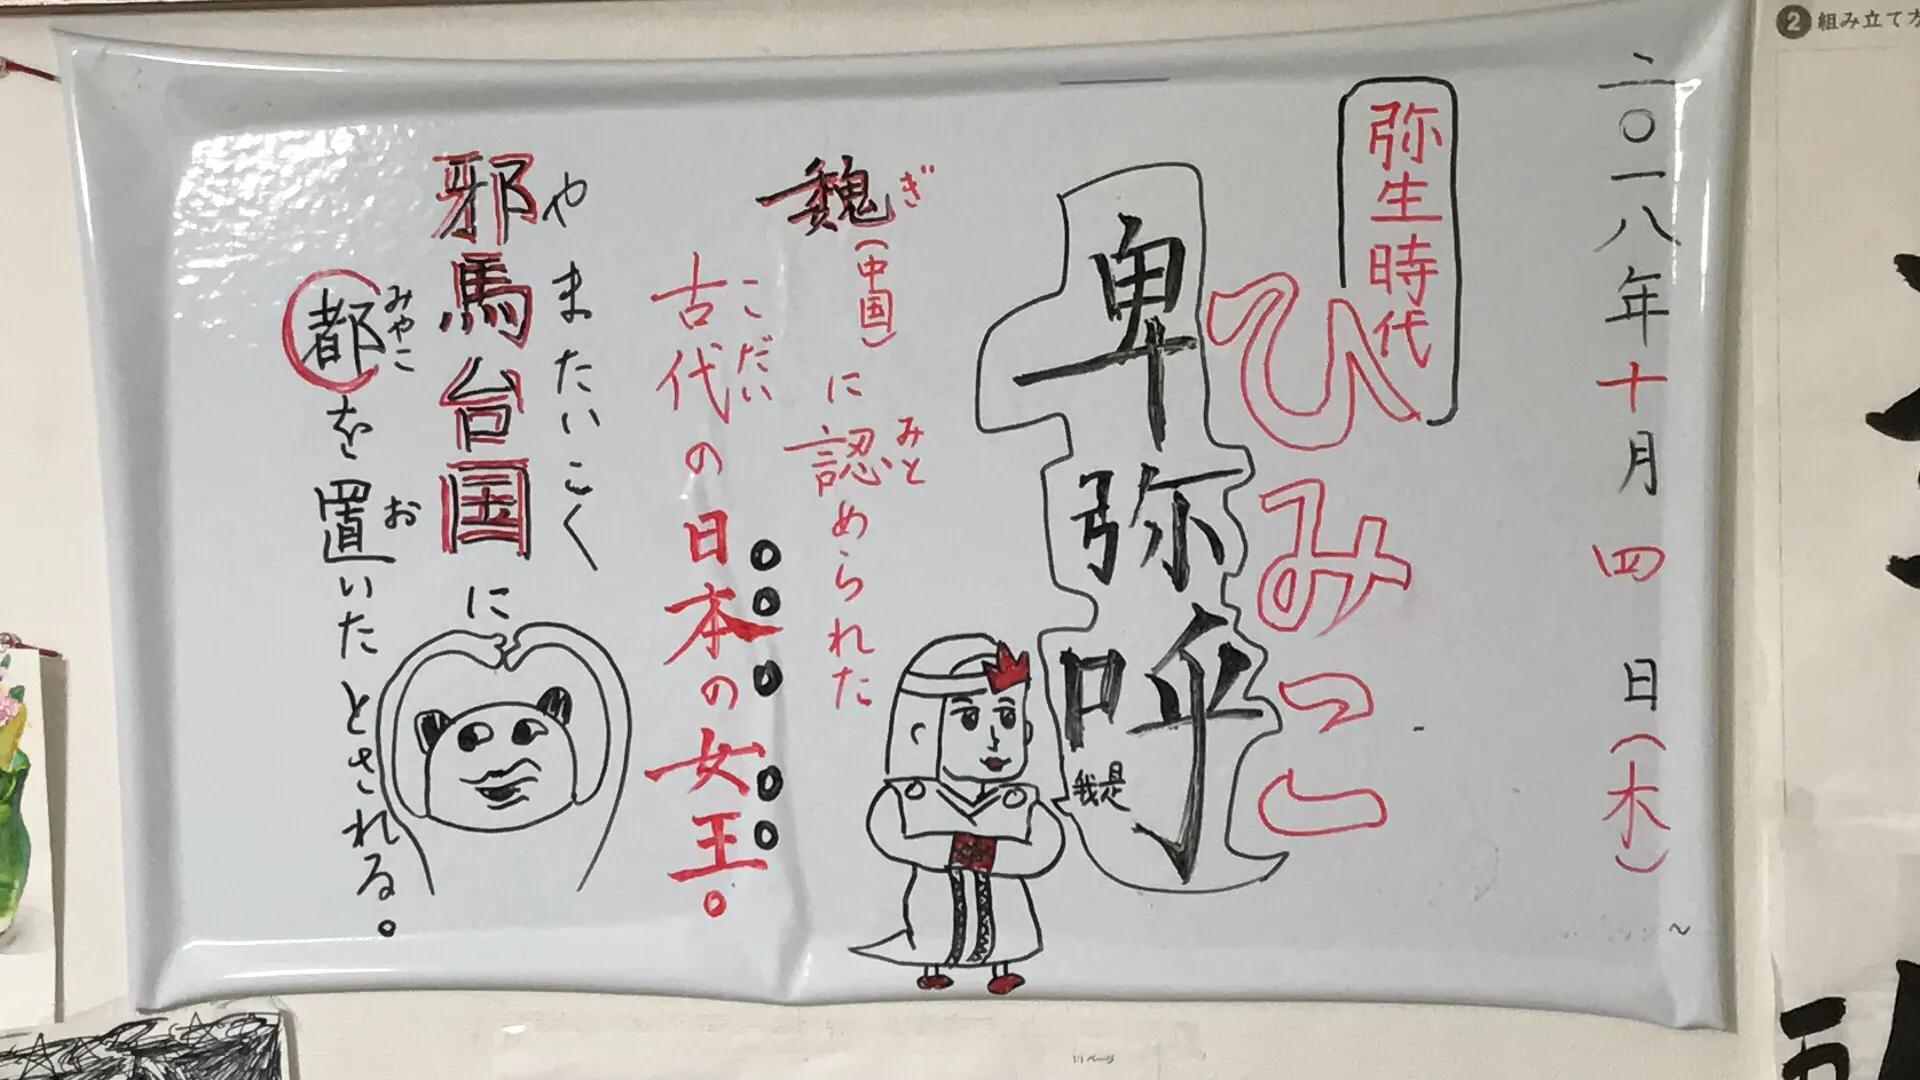 ❷ 組み立て方
二〇一八年十月四日（木）
弥生時代
ひみこ
卑弥呼
我是
ぎ
魏（中国）に認められた
みと
こだい
古代の日本の女王。
やまたいこく
邪馬台国に
みやこ お
都を置いたとされる。
11ページ